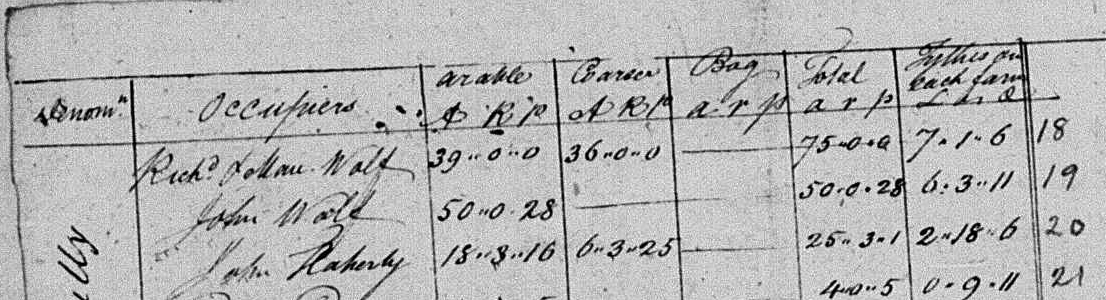 Denomn Occupiers arable A R P Coarser A R P Bog a r p Total a r p Tythes on each farm L s d
Richd & Mau Wolf 39"0"0 36"0"0 75"0"0 7"1"6 18
John Wolf 50"0"28 50"0"28 6"3"11 19
John Flaherty 18"3"16 6"3"25 25"3"1 2"18"6 20
4"0"5 0"9"11 21
lly